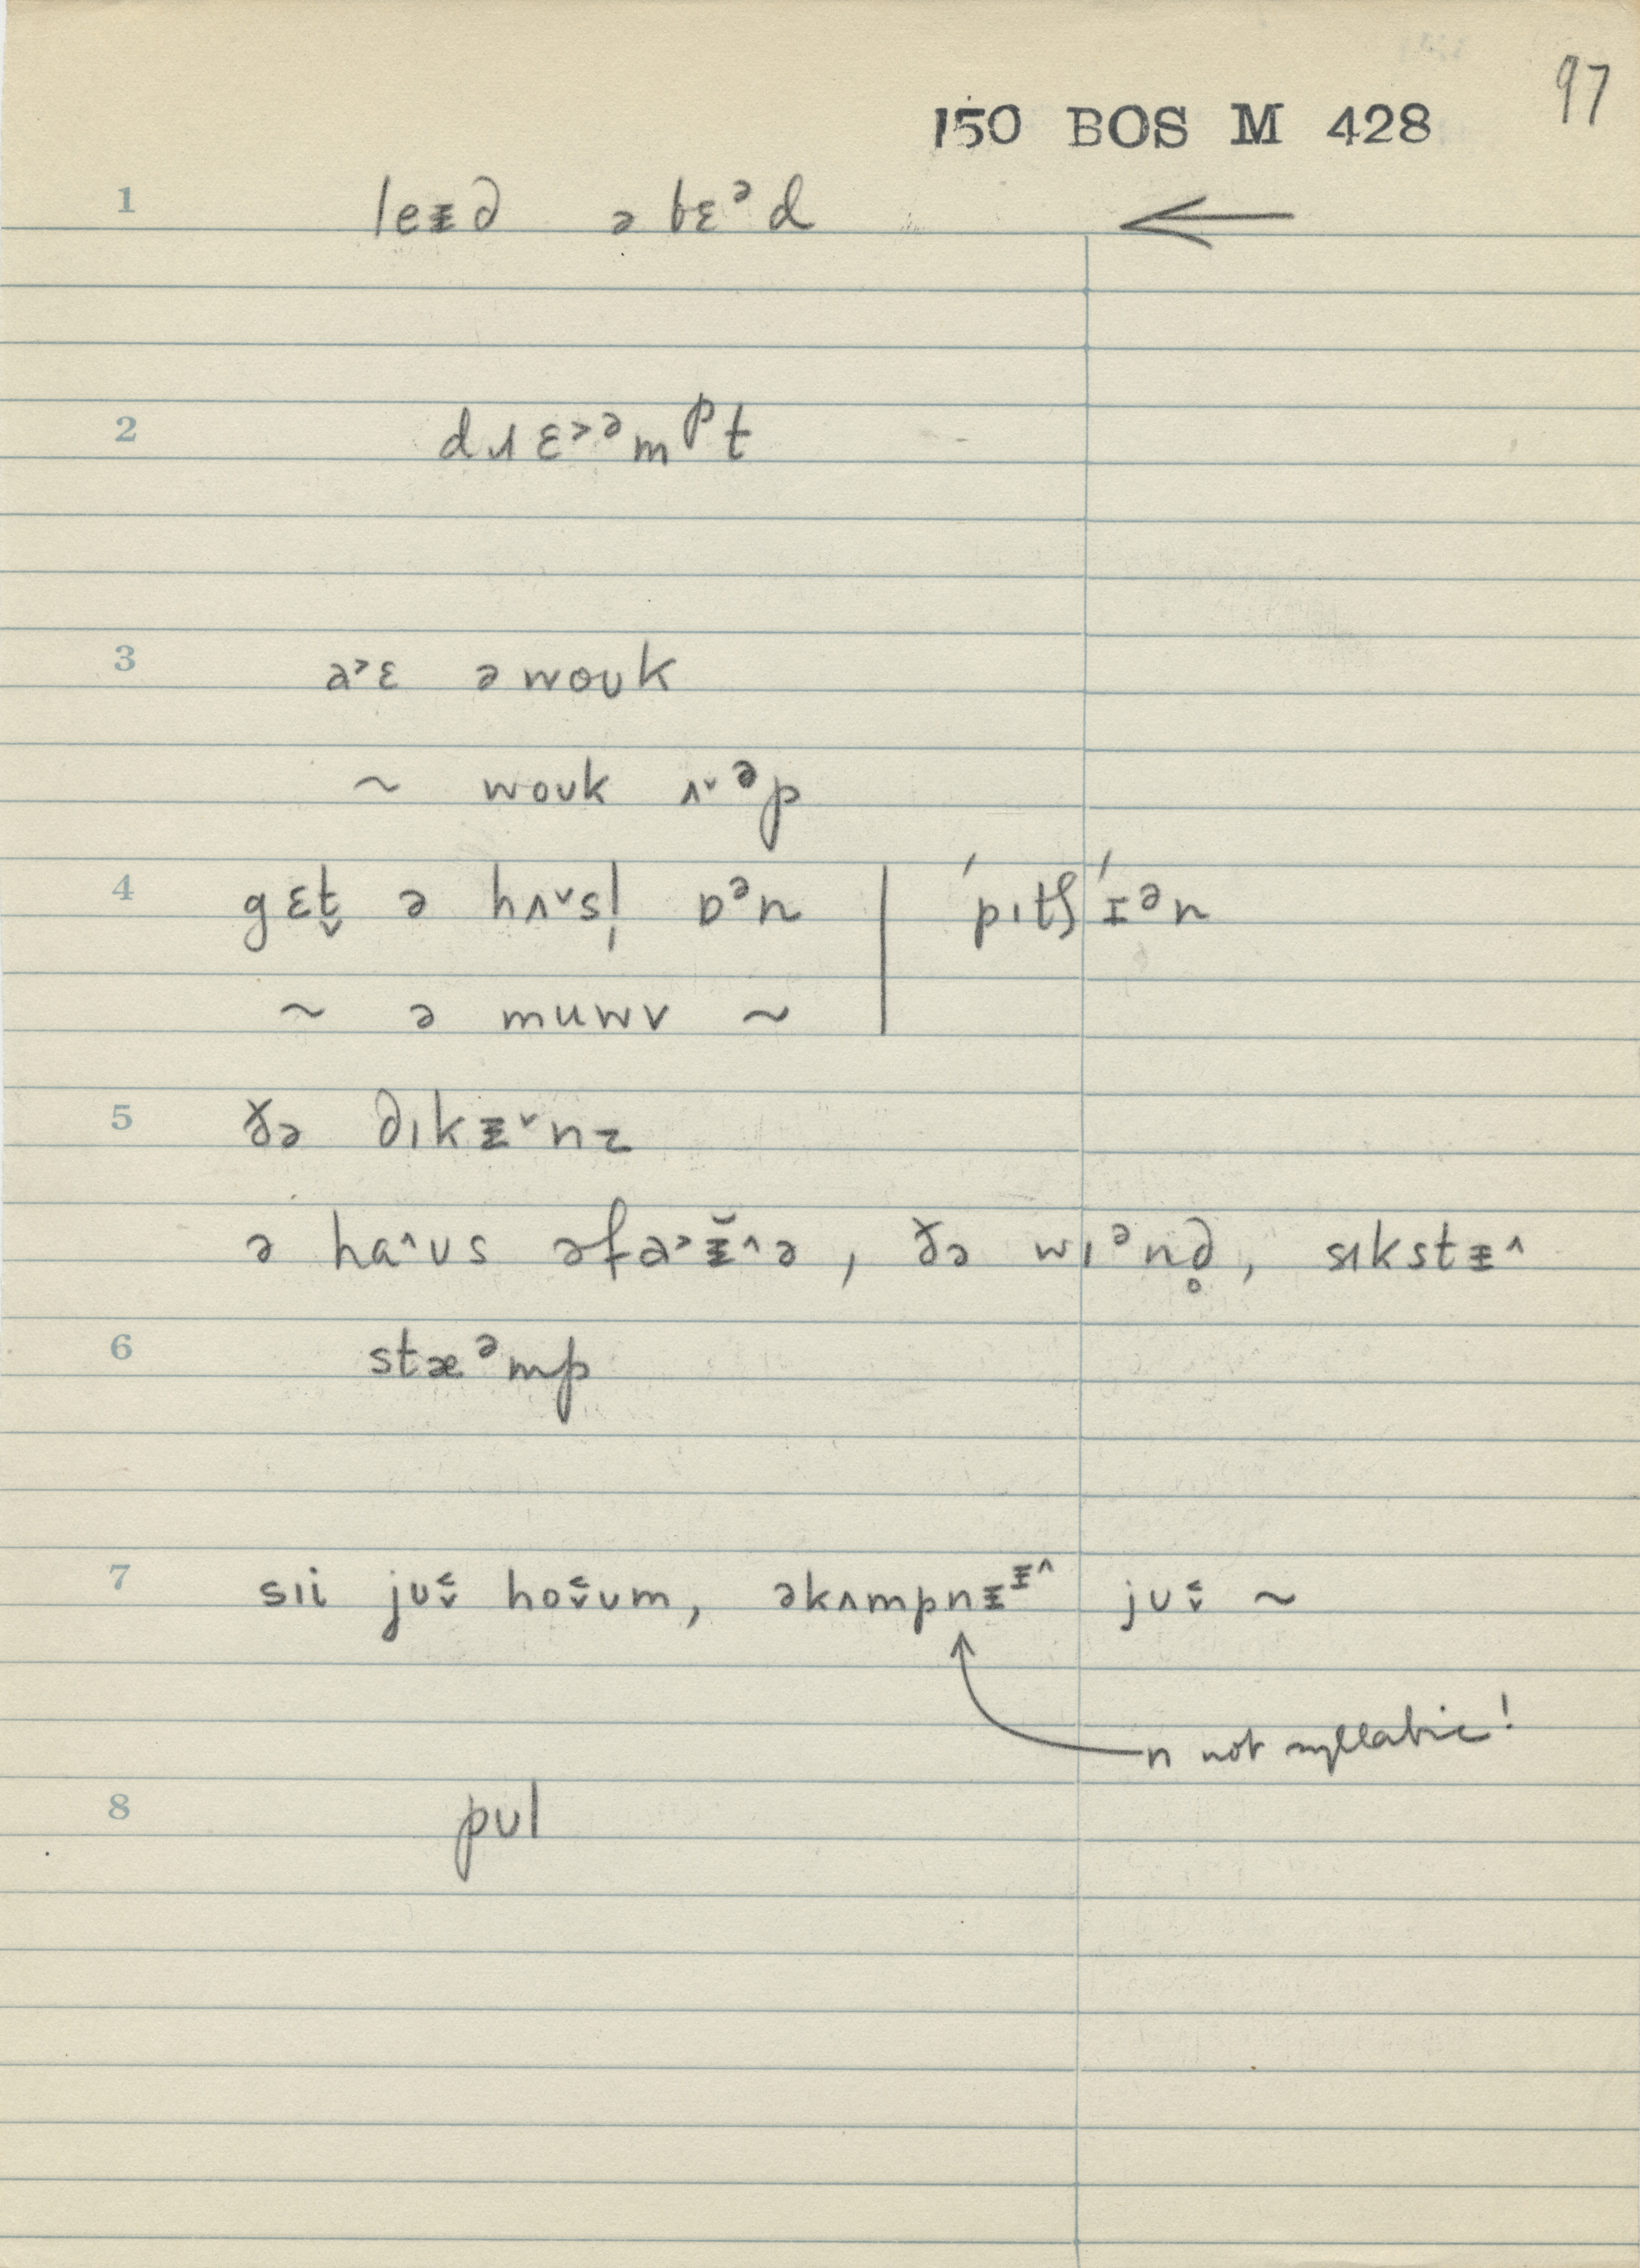 97
150 BOS M 428
1 leᵻ∂ ə bɛᵊd
2 dɹɛ˃ᵊmᵖt
3 a˃ɛ ə woʊk
~ woʊk ʌ˅ᵊp
4 gɛt̬ ə hʌ˅sl̩ ɒᵊn | ˈpɪtʃˈɪᵊn
~ ə muwv ~
5 ðə ∂ɪkᵻ˅nz
ə ha˄ʊs əfa˃ᵻ̆˄ə, ðə wɪᵊn∂̥, sɪkstᵻ˄
6 stæᵊmp
7 sɪi jʊ˂˅ ho˂˅ʊm, əkʌmpnᵻᵻ˄ jʊ˂˅ ~
n not syllabic!
8 pʊl